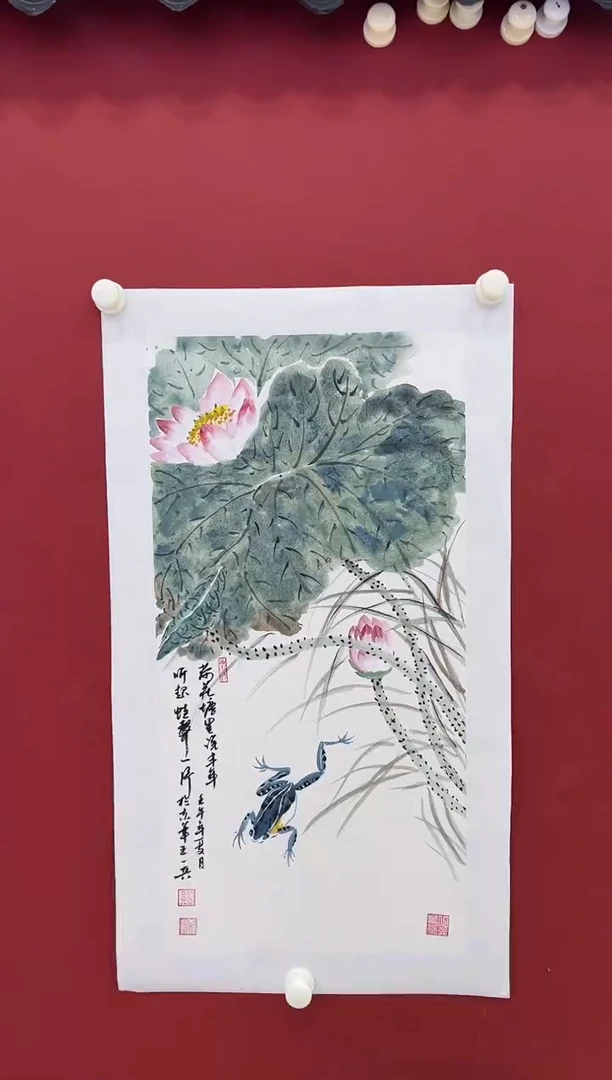 荷花塘里说丰年
听取蛙聲一片
壬午年夏月
於京華王一兵